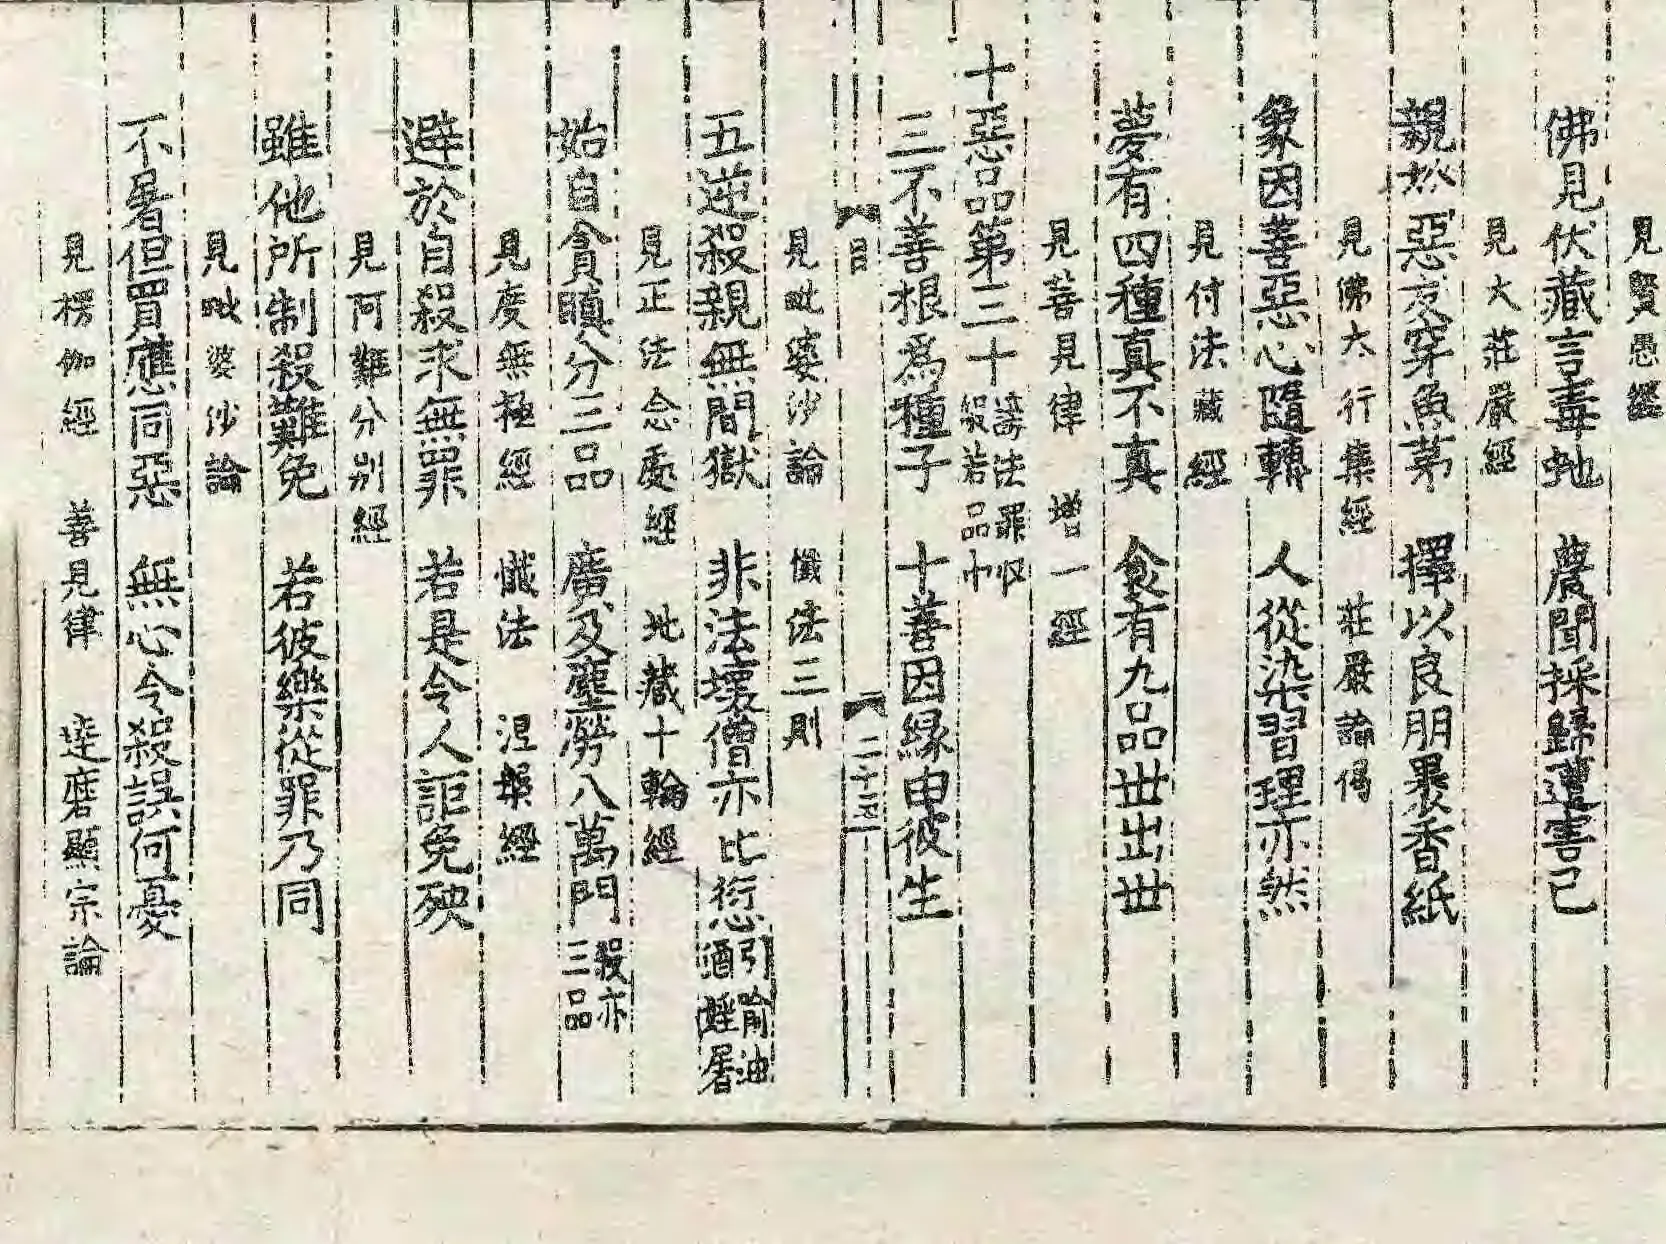 見賢愚經
佛見伏藏言毒虵 農聞採歸遭害己
見大莊嚴經
親於惡友穿魚茅 擇以良朋裹香紙
見佛大行集經 莊嚴論偈
象因善惡心隨轉 人從染習理亦然
見付法藏經
夢有四種真不真 食有九品世出世
見善見律 增一經
十惡品第三十諸法罪収殺若品中
三不善根為種子 十善因緣由彼生
目 二十五
見毗婆沙論 懺法三則
五逆殺親無間獄 非法壞僧亦比愆引喻油酒婬居
見正法念處經 地藏十輪經
始自貪瞋分三品 廣及塵勞八萬門殺亦三品
見度無極經 懺法 涅槃經
避於自殺求無罪 若是令人詎免殃
見阿難分別經
雖他所制殺難免 若彼樂從罪乃同
見毗婆沙論
不屠但買應同惡 無心令殺誤何憂
見楞伽經 善見律 達磨顯宗論